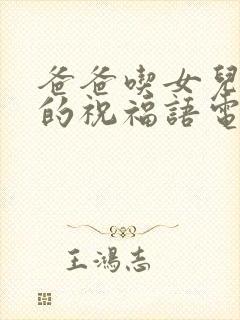 爸爸喫女兒
的祝福語電
王鴻志